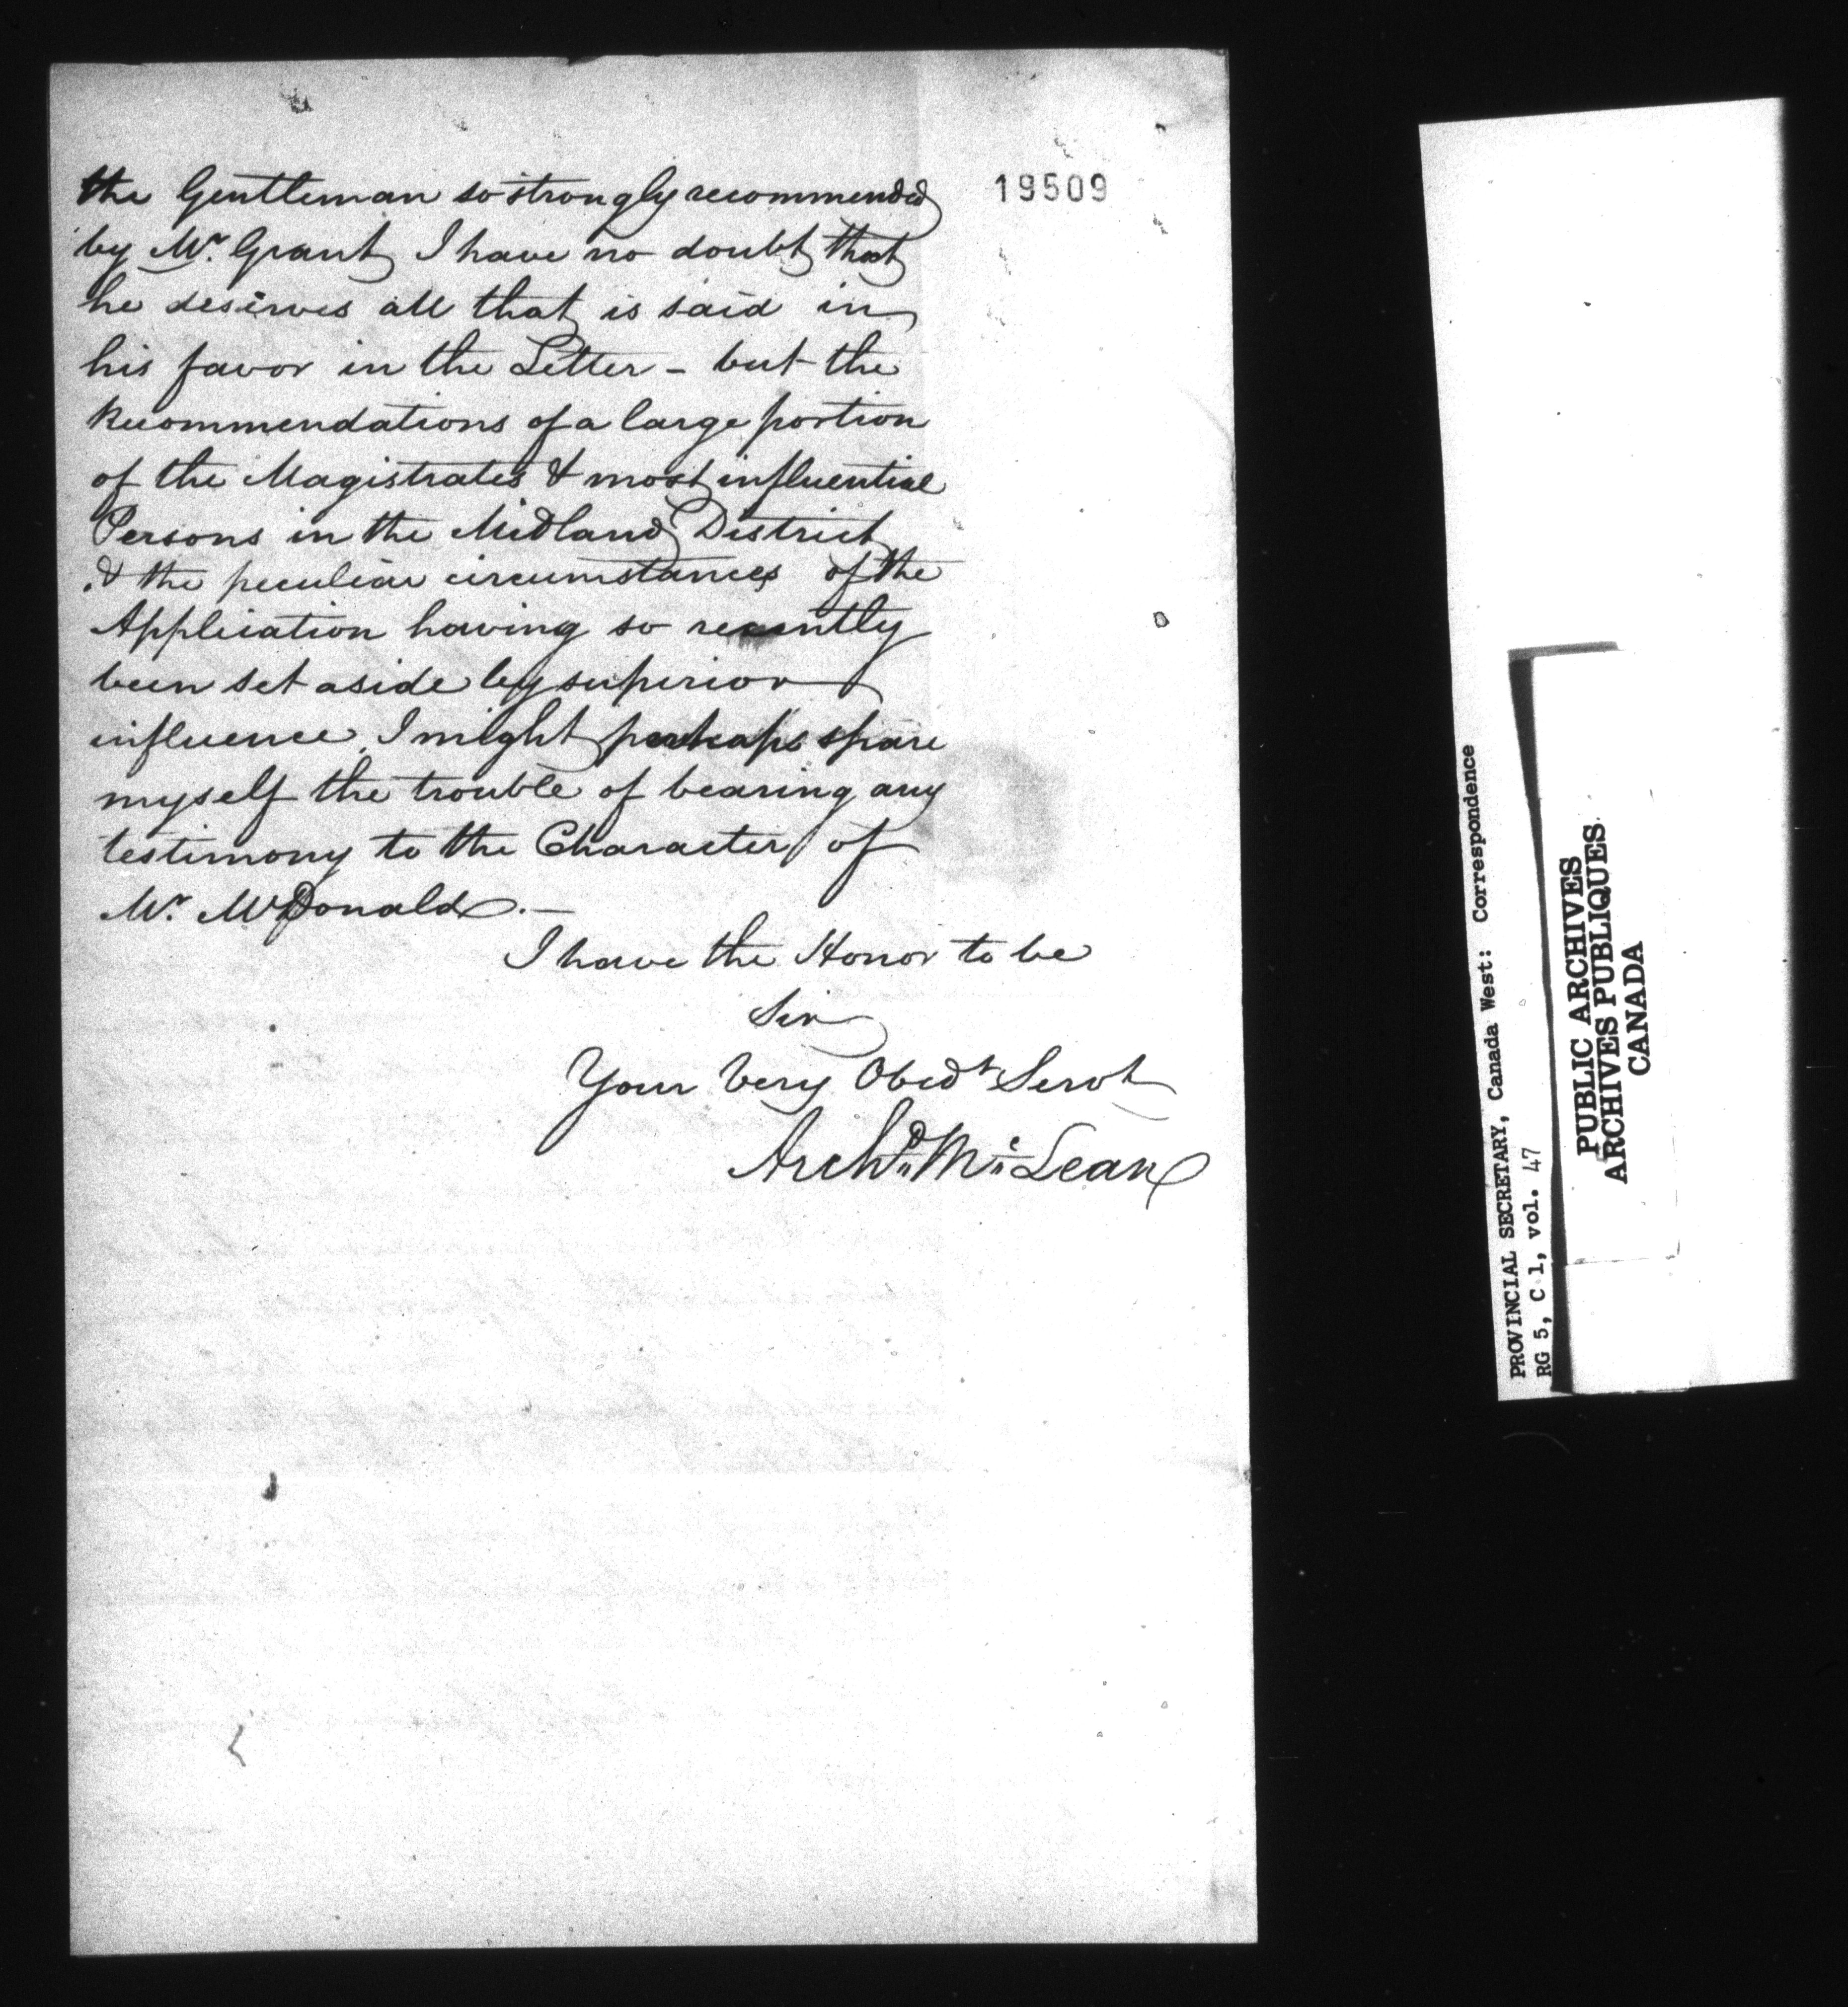 19509
the Gentleman so strongly recommended
by Mr. Grant I have no doubt that
he deserves all that is said in
his favor in the Letter - but the
Recommendations of a large portion
of the Magistrates & most influential
Persons in the Midland District
& the peculiar circumstances of the
Application having so recently
been set aside by superior
influence, I might perhaps spare
myself the trouble of bearing any
testimony to the Character of
Mr. McDonald. —
I have the Honor to be
Sir
Your Very Obedt Servt
Archd McLean
PROVINCIAL SECRETARY, Canada West: Correspondence
RG 5, C 1, vol. 47
PUBLIC ARCHIVES
ARCHIVES PUBLIQUES
CANADA